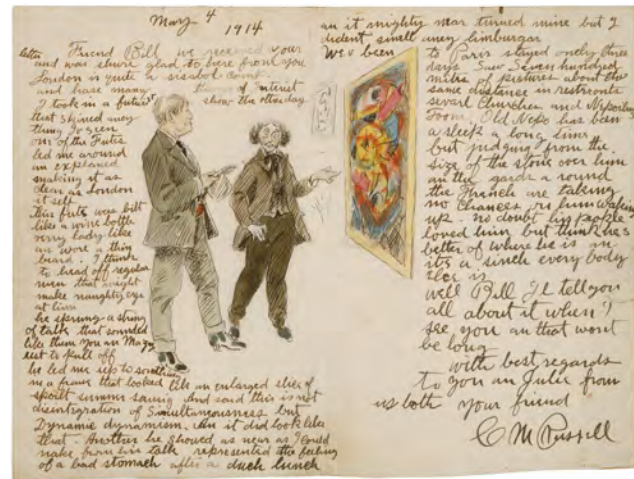 May 4
1914
Friend Bill we received your
letter and was shure glad to here from you
London is quite a sisabel Count.
and hase many things of Interest
I took in a futurist show the otherday
that skined aney
thing Iv seen
one of the Futes
led me around
an explaned
making it as
clear as London
it self
This fute was bilt
like a wine bottle
verry lady like
an wore a thin
beard. I think
to head off regular
men that might
make naughty eyes
at him
he sprung a string
of talk that sounded
like them you an Mary
ust to pull off
he led me up to something
in a frame that looked like an enlarged slice of
spoilt summer sausag And said this is not
disintigration of Simultaneousness but
Dynamic dynamism. An it did look like
that. Another he showed, as near as I could
make from his talk represented the feeling
of a bad stomach after a duch lunch
an it mighty near turned mine but I
dident smell aney limburgar
We v been to Paris stayed onely three
days Saw Seven hundred
miles of pictures about the
same distance in restronts
sevarl Churches and Nepolians
Toom. Old Nepo has been
a sleep a long time
but judging from the
size of the stone over him
an the gards a round
the French are taking
no chances on him waking
up. no doubt his people
loved him but think hes
better of where he is an
its a sinch every body
elce is
well Bill Il tell you
all about it when I
see you an that wont
be long
with best regards
to you an Julie from
us both your friend
C M Russell